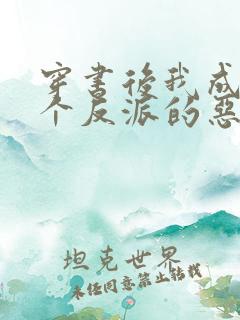 穿書後我成
个反派的惡
坦克世界
未经同意禁止转载